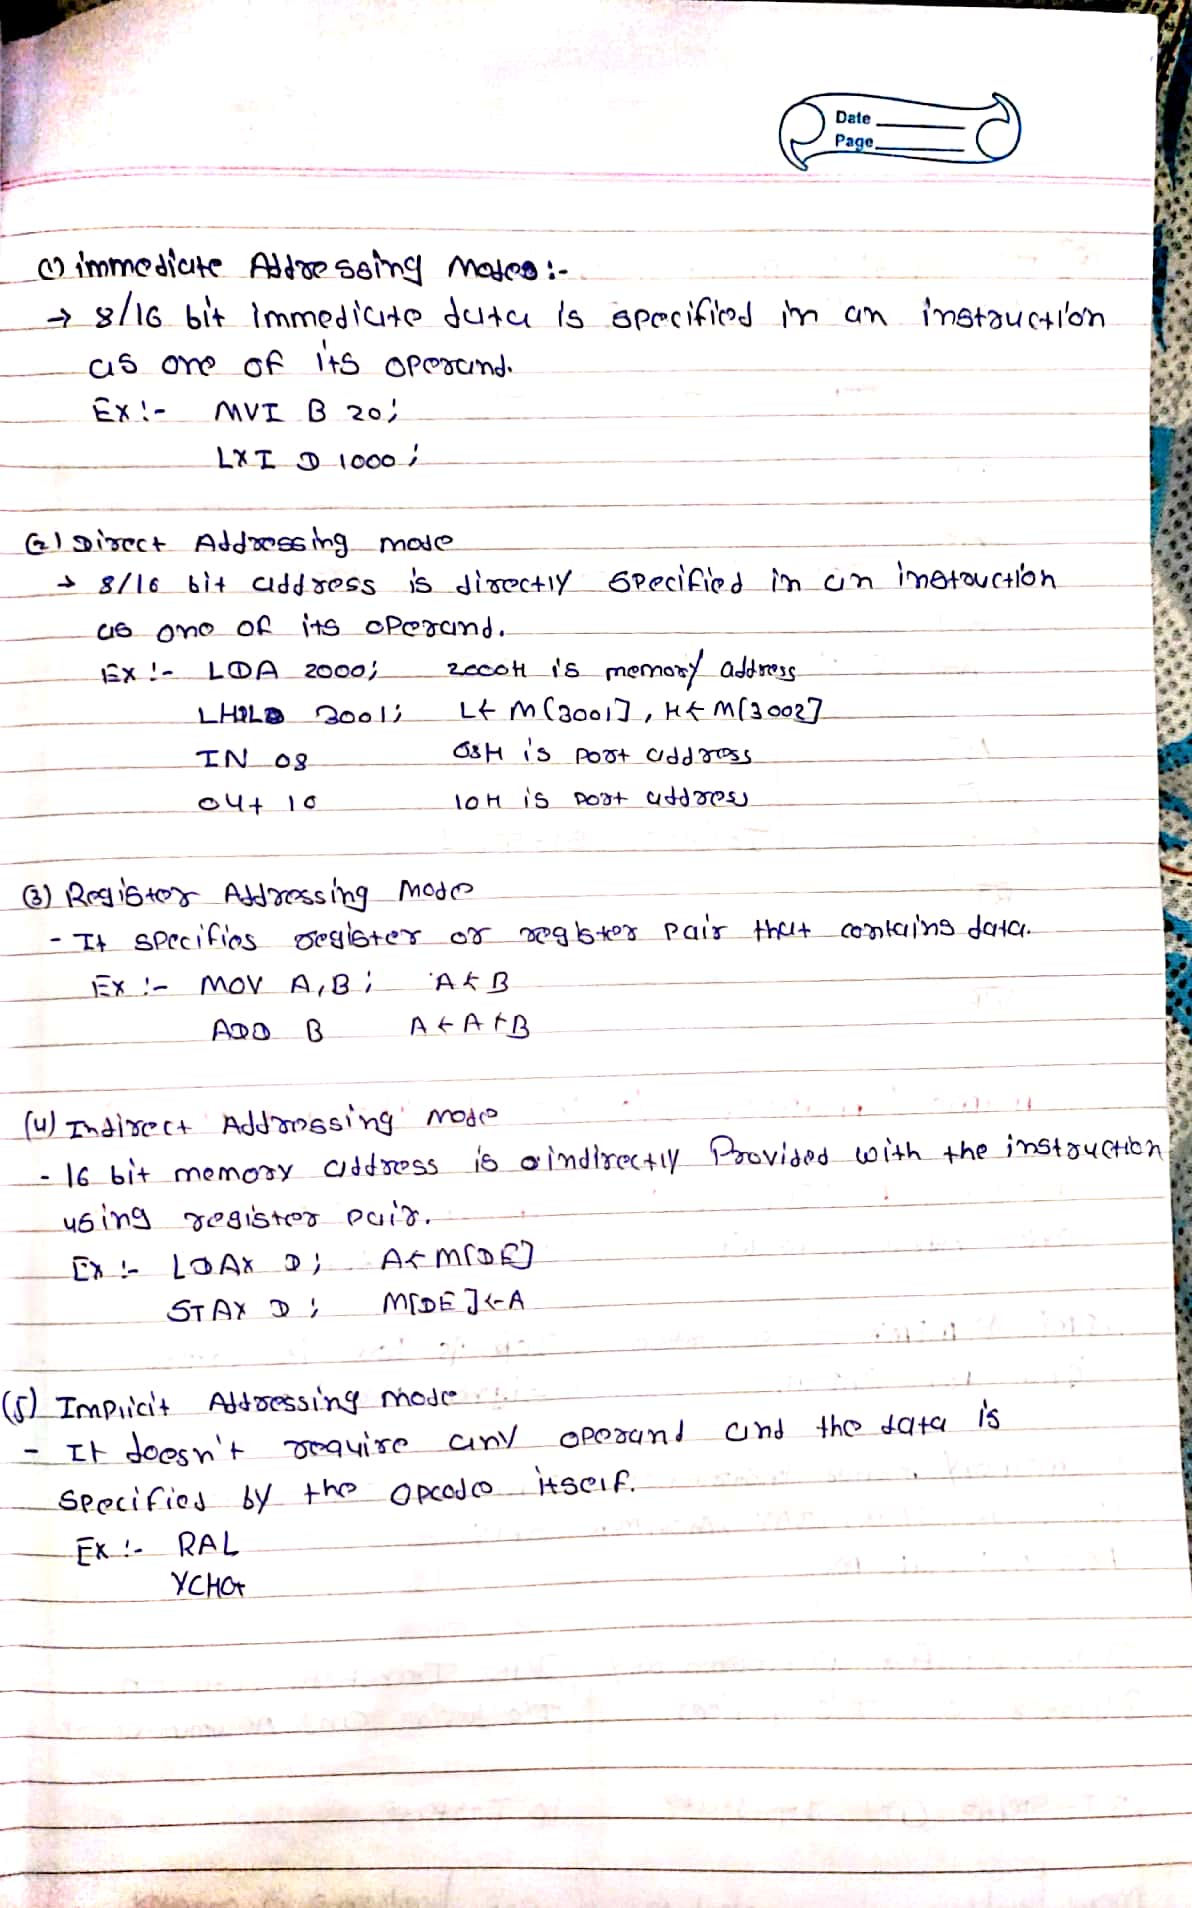 Date
Page
(1) immediate Addressing Modes :-
→ 8/16 bit immediate data is specified in an instruction
as one of its operand.
Ex :- MVI B 20;
LXI D 1000;
(2) Direct Addressing mode
→ 8/16 bit address is directly specified in an instruction
as one of its operand.
Ex :- LDA 2000; 2000H is memory address
LHLD 3001; L← M[3001], H← M[3002]
IN 08 08H is port address
OUT 10 10H is port address
(3) Register Addressing Mode
- It specifies register or register pair that contains data.
Ex :- MOV A,B; A←B
ADD B A←A+B
(4) Indirect Addressing mode
- 16 bit memory address is indirectly Provided with the instruction
using register pair.
Ex :- LDAX D; A←M[DE]
STAX D; M[DE]←A
(5) Implicit Addressing mode
- It doesn't require any operand and the data is
specified by the opcode itself.
Ex :- RAL
XCHG